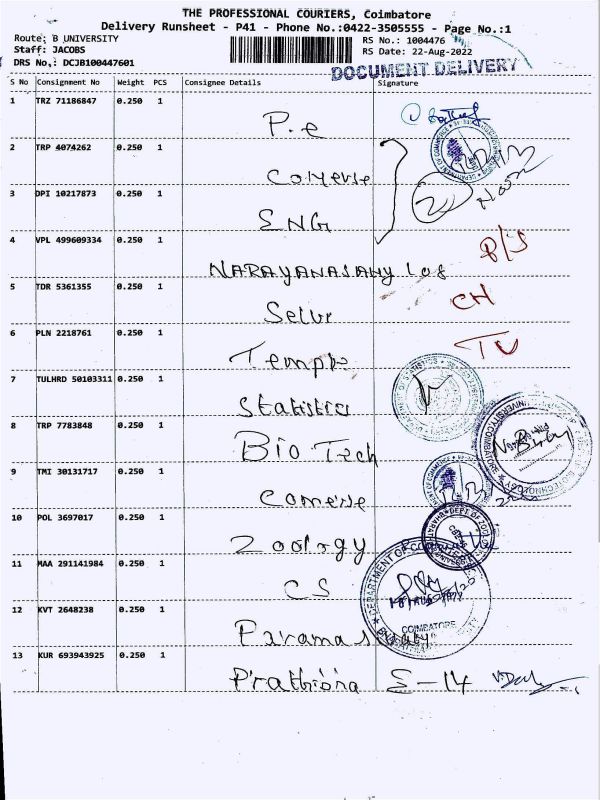 THE PROFESSIONAL COURIERS, Coimbatore
Delivery Runsheet - P41 - Phone No.:0422-3505555 - Page No.:1
Route: B UNIVERSITY
RS No.: 1004476
Staff: JACOBS
RS Date: 22-Aug-2022
DRS No.: DCJB100447601
DOCUMENT DELIVERY
S No Consignment No Weight PCS Consignee Details Signature
1 TRZ 71186847 0.250 1 P.e
2 TRP 4074262 0.250 1 Comerse
3 DPI 10217873 0.250 1 ENG
4 VPL 499609334 0.250 1 NARAYANASAMY
B/S
5 TDR 5361355 0.250 1 Selvi
CH
6 PLN 2218761 0.250 1 Temple
TV
7 TULHRD 50103311 0.250 1 Statistics
8 TRP 7783848 0.250 1 Bio Tech
9 TMI 30131717 0.250 1 Comerse
10 POL 3697017 0.250 1 Zoology
DEPT OF ZOO
11 MAA 291141984 0.250 1 CS
DEPARTMENT OF
COIMBATORE
12 KVT 2648238 0.250 1
13 KUR 693943925 0.250 1 E-14